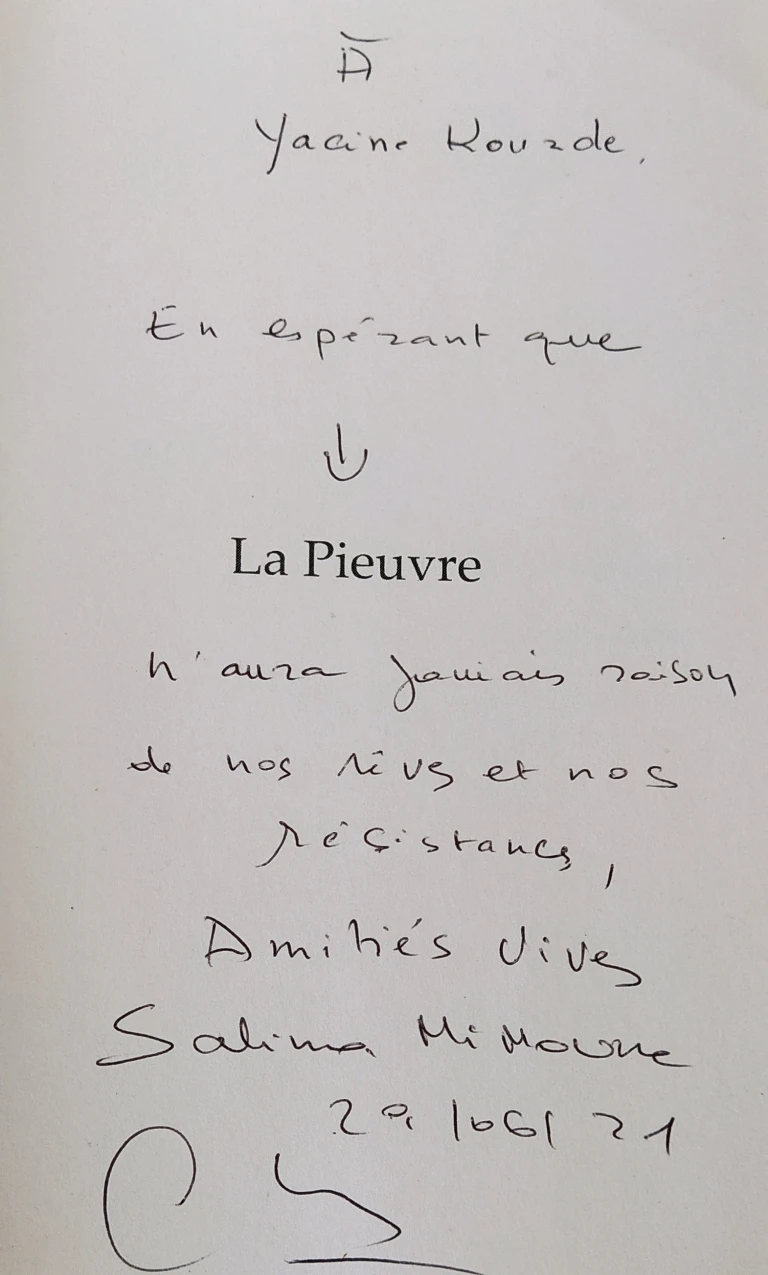 À
Yacine Kourde,
En espérant que
La Pieuvre
n'aura jamais raison
de nos rêves et nos
résistances,
Amitiés vives
Salima Mimoune
/06/21